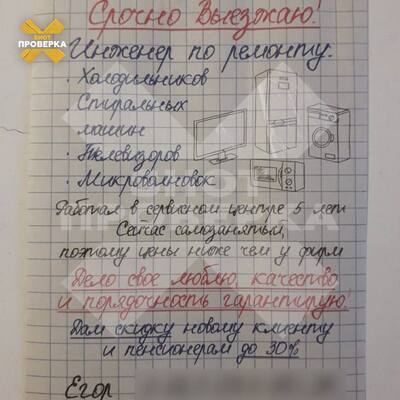 ЕНОТ
ПРОВЕРКА
Срочно Выезжаю!
Инженер по ремонту:
· Холодильников
· Стиральных
машин
· Телевизоров
· Микроволновок
Работал в сервисном центре 5 лет
Сейчас самозанятый,
поэтому цены ниже чем у фирм
Дело своё люблю, качество
и порядочность гарантирую!
Дам скидку новому клиенту
и пенсионерам до 30%
Егор